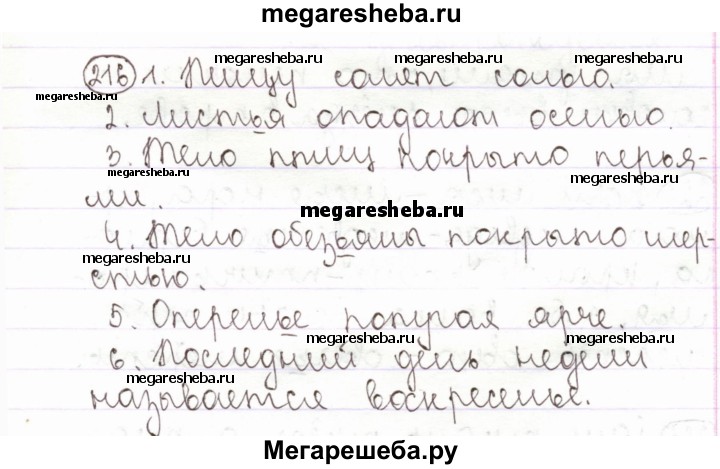 megaresheba.ru
216 1. Пищу солят солью.
megaresheba.ru megaresheba.ru megaresheba.ru
megaresheba.ru
2. Листья опадают осенью.
3. Тело птиц покрыто перья-
megaresheba.ru megaresheba.ru
ми.
megaresheba.ru
4. Тело обезьяны покрыто шер-
megaresheba.ru
стью.
5. Оперенье попугая ярче.
megaresheba.ru
6. Последний день недели
megaresheba.ru megaresheba.ru
называется воскресенье.
Мегарешеба.ру